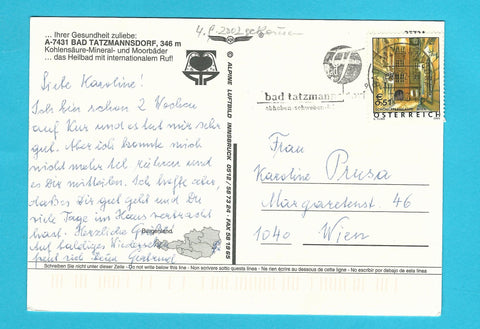 ... Ihrer Gesundheit zuliebe:
A-7431 BAD TATZMANNSDORF, 346 m
Kohlensäure-Mineral- und Moorbäder
... das Heilbad mit internationalem Ruf!
Liebe Karoline!
Ich bin schon 2 Wochen
auf Kur und es tut mir sehr
gut. Aber ich konnte mich
nicht mehr rühren und
es Dir mitteilen. Ich hoffe aber,
dass es Dir gut geht und Du
viele Tage im Haus verbracht
hast. Herzliche Grüße
Auf baldiges Wiedersehen
freut sich Deine
Burgenland
© ALPINE LUFTBILD INNSBRUCK 0512/58 73 24 · FAX 58 19 65
4.9.2002
bad tatzmannsdorf
0,51
ÖSTERREICH
Frau
Karoline Prusa
Margaretenst. 46
1040 Wien
Schreiben Sie nicht unter dieser Zeile - Do not write below this line - Non scrivere sotto questa linea - Ne rien écrire au dessous de cette ligne - No escribir por debajo de esta línea